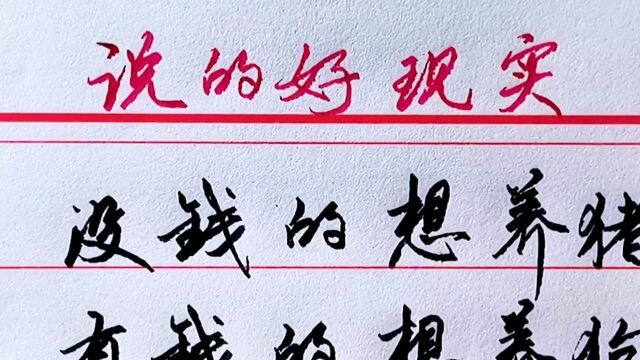 说的好现实
没钱的想养猪
有钱的想养狗